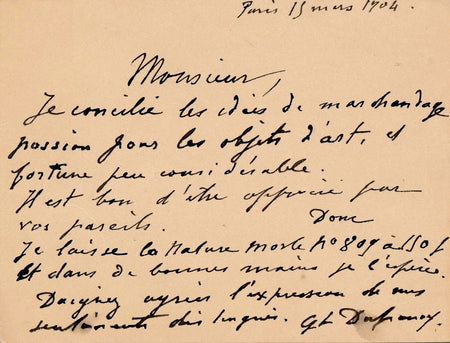 Paris 15 mars 1904.
Monsieur,
Je concilie les idées de marchandage
passion pour les objets d'art, et
fortune peu considérable.
Il est bon d'être apprécié par
vos pareils. Donc
Je laisse la Nature Morte No 809 à 550 f
et dans de bonnes mains je l'espère.
Daignez agréer l'expression de mes
sentiments distingués.